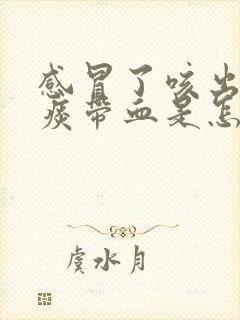 感冒了咳出
痰带血是怎
虞水月